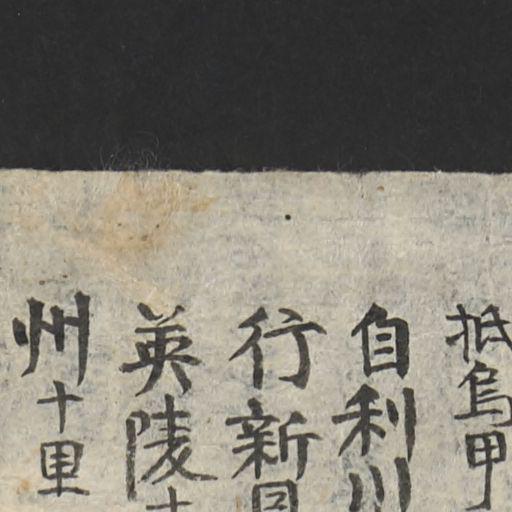 抵烏甲
自利川
行新
英陵十
州十里